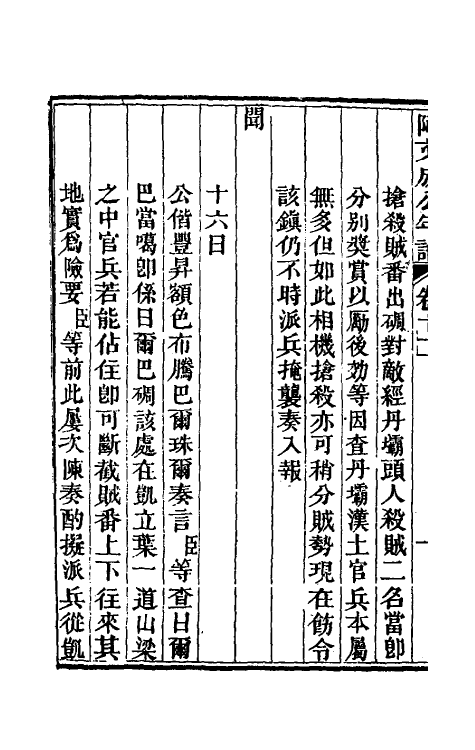 阿文成公年譜 卷十二
搶殺賊番出碉對敵經丹壩頭人殺賊二名當卽
分別獎賞以勵後効等因查丹壩漢土官兵本屬
無多但如此相機搶殺亦可稍分賊勢現在飭令
該鎭仍不時派兵掩襲奏入報
聞
十六日
公偕豐昇額色布騰巴爾珠爾奏言臣等查日爾
巴當噶卽係日爾巴碉該處在凱立葉一道山梁
之中官兵若能佔住卽可斷截賊番上下往來其
地實爲險要臣等前此屢次陳奏酌擬派兵從凱